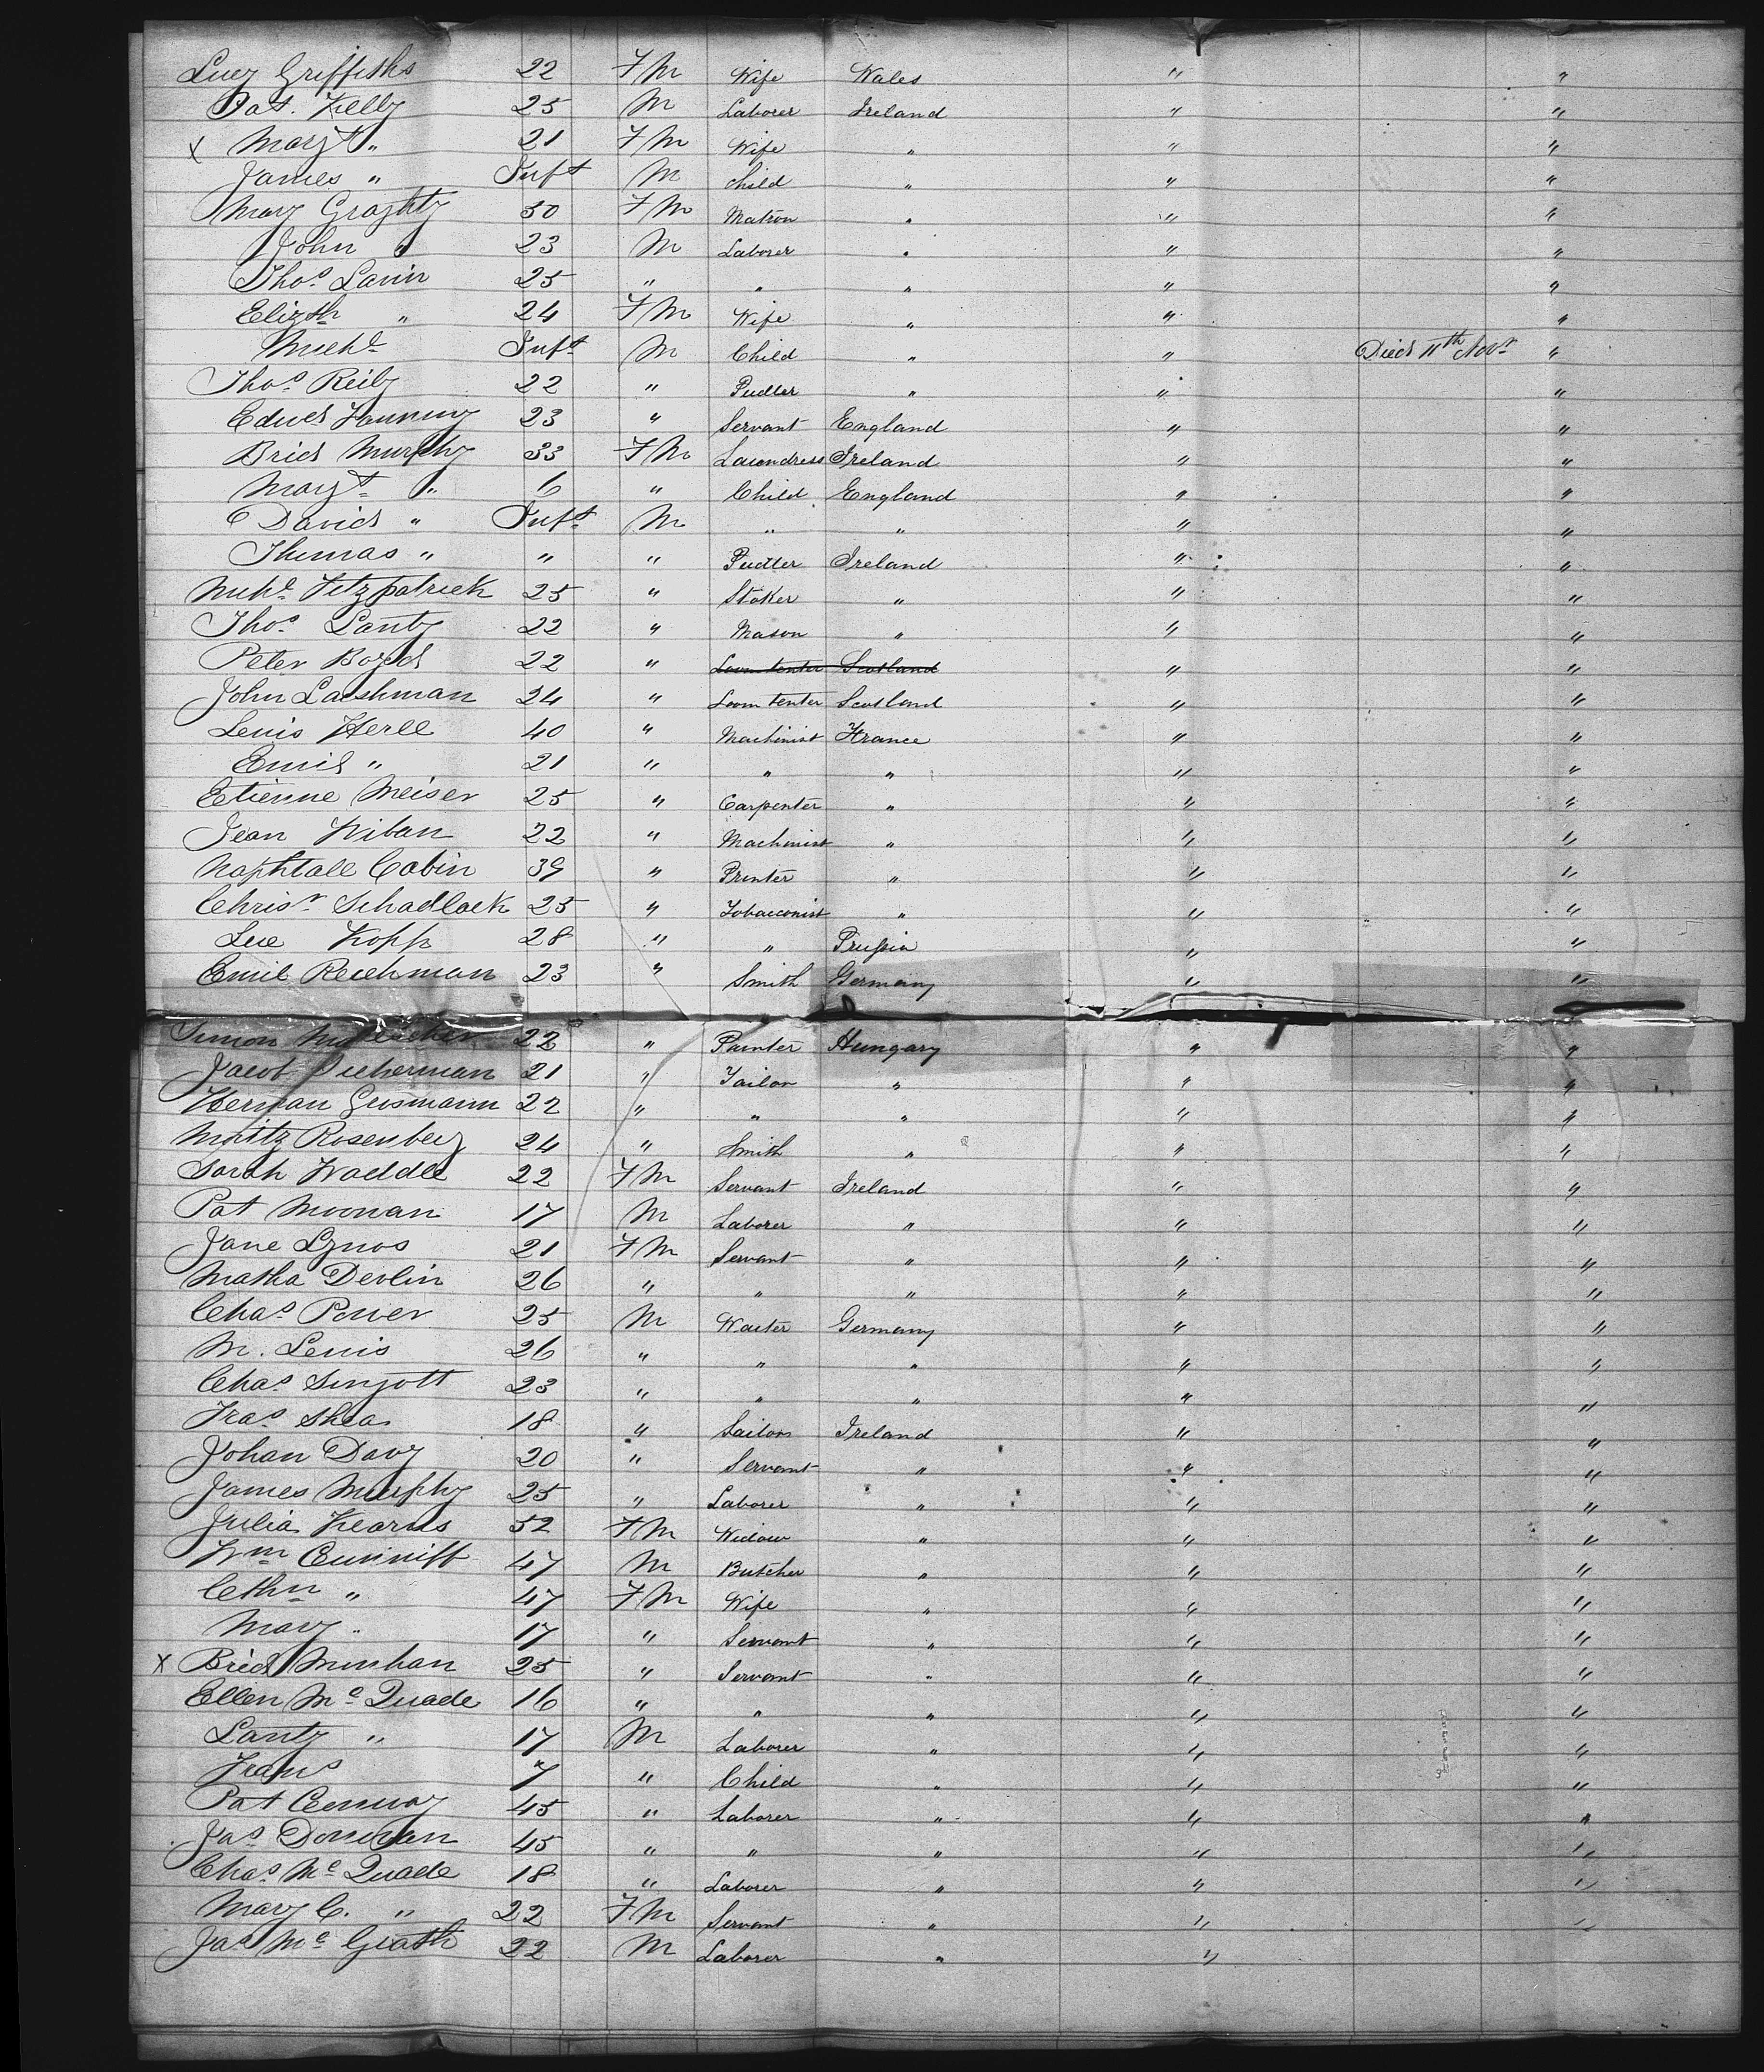 Lucy Griffiths 22 FM Wife Wales " "
Pat. Kelly 25 M Laborer Ireland " "
x Margt " 21 FM Wife " " "
James " Inft M Child " " "
Mary Graghty 50 FM Matron " " "
John " 23 M Laborer " " "
Thos Lavin 25 " " " " "
Elizth " 24 FM Wife " " "
Michl Inft M Child " " Died 11th Novr "
Thos Reily 22 " Pudler " " "
Edwd Fanning 23 " Servant England " "
Brid Murphy 33 FM Laundress Ireland " "
Margt " 6 " Child England " "
David " Inft M " " " "
Thomas " " " Pudler Ireland " "
Michl Fitzpatrick 25 " Stoker " " "
Thos Lanty 22 " Mason " " "
Peter Boyd 22 " Loom tenter Scotland " "
John Laishman 24 " Loom tenter Scotland " "
Louis Herle 40 " Machinist France " "
Emil " 21 " " " " "
Etienne Meiser 25 " Carpenter " " "
Jean Wiban 22 " Machinist " " "
Naphtall Cabin 39 " Printer " " "
Chrisr Schadlock 25 " Tobacconist " " "
Kopp 28 " " Prussia " "
Emil Reichman 23 " Smith Germany " "
Simon 22 " Painter Hungary " "
Jacob 21 " Tailor " " "
Herman Gusmann 22 " " " " "
Moritz Rosenberg 24 " Smith " " "
Sarah Waddle 22 FM Servant Ireland " "
Pat Moonan 17 M Laborer " " "
Jane Lynos 21 FM Servant " " "
Matha Devlin 26 " " " " "
Chas Power 25 M Waiter Germany " "
M. Lewis 26 " " " " "
Chas Sinzott 23 " " " " "
Fras Shea 18 " Sailors Ireland " "
Johan Davy 20 " Servant " " "
James Murphy 25 " Laborer " " "
Julia Kearns 52 FM Widow " " "
Wm Cunniff 47 M Butcher " " "
Cthn " 47 FM Wife " " "
Mary " 17 " Servant " " "
x Brid Minhan 25 " Servant " " "
Ellen Mc Quade 16 " " " " "
Lanty " 17 M Laborer " " "
Frans 7 " Child " " "
Pat Conway 45 " Laborer " " "
Jas Donovan 45 " " " " "
Chas Mc Quade 18 " Laborer " " "
Mary C. " 22 FM Servant " " "
Jas Mc Grath 22 M Laborer " "